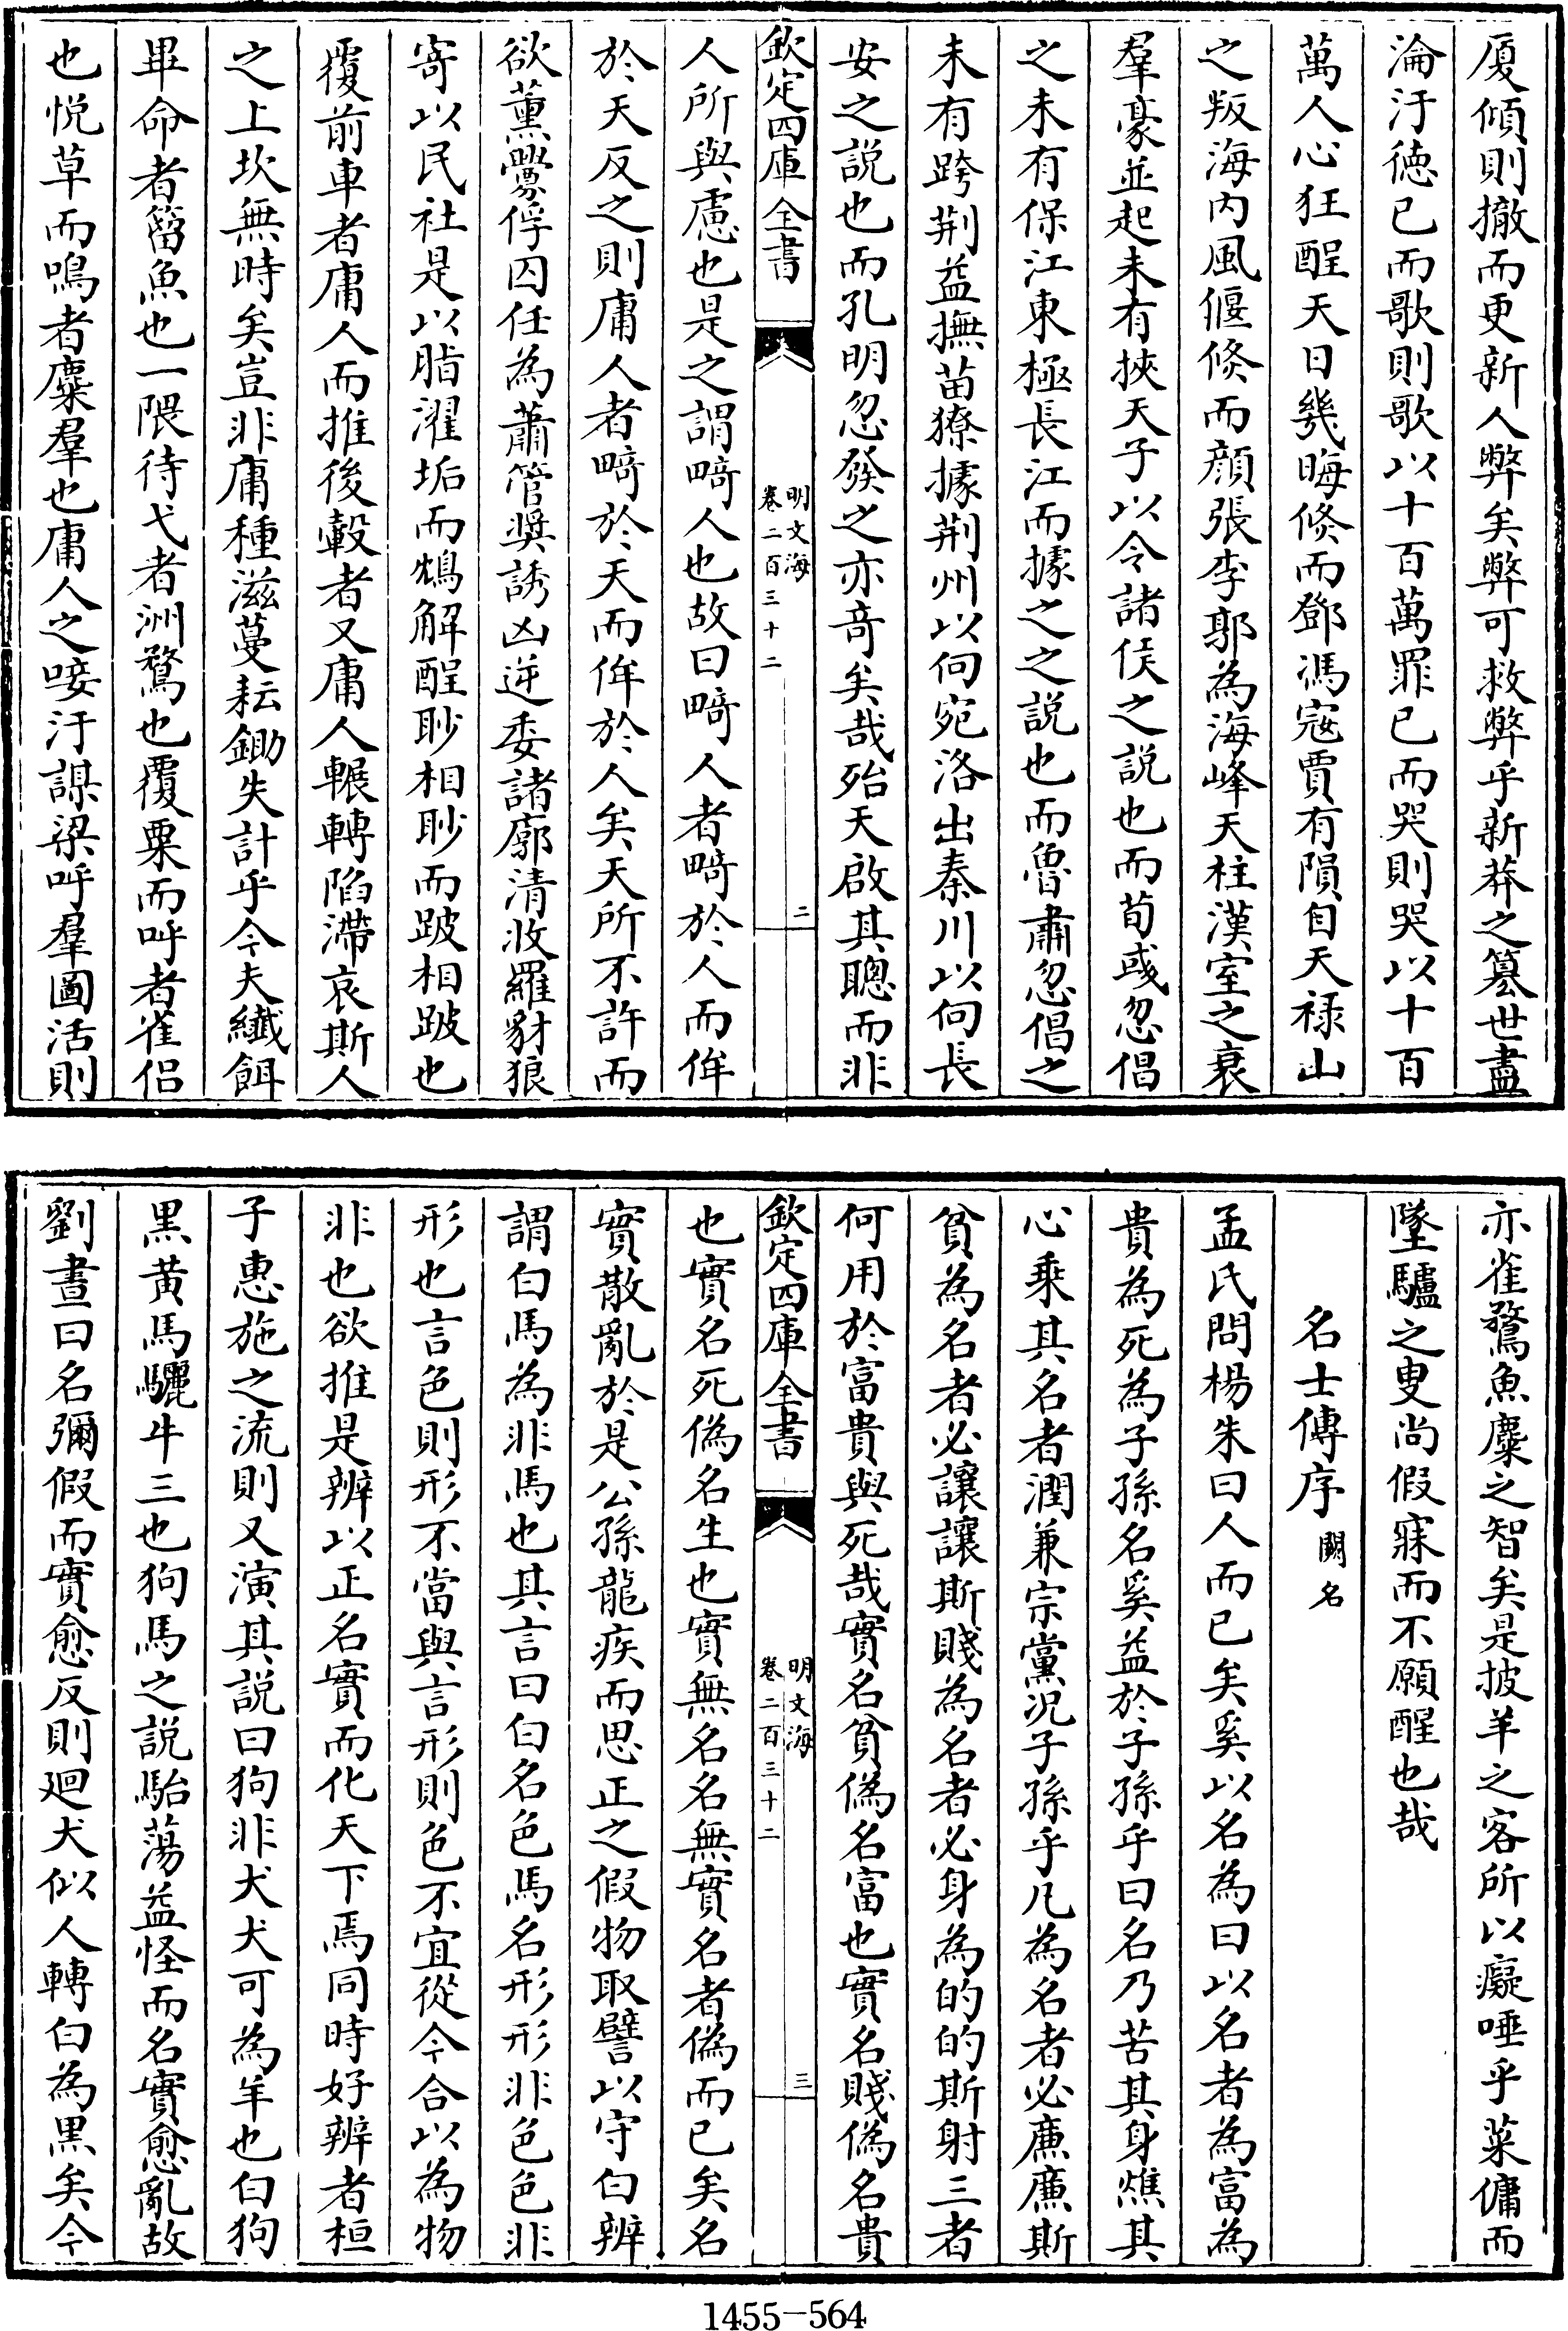 厦傾則撤而更新人弊矣弊可救弊乎新莽之簒世盡
淪汙徳已而歌則歌以十百萬罪已而哭則哭以十百
萬人心狂酲天日幾晦倏而鄧馮寇賈有隕自天禄山
之叛海内風偃倏而顔張李郭為海峰天柱漢室之衰
羣豪並起未有挾天子以令諸侯之説也而荀彧忽倡
之未有保江東極長江而據之之説也而魯肅忽倡之
未有跨荆益撫苗獠據荆州以向宛洛出秦川以向長
安之説也而孔明忽發之亦竒矣哉殆天啟其聰而非
欽定四庫全書
明文海
卷二百三十二
二
人所與慮也是之謂畸人也故曰畸人者畸於人而侔
於天反之則庸人者畸於天而侔於人矣天所不許而
欲薫釁俘囚任為蕭管奨誘凶逆委諸廓清收羅豺狼
寄以民社是以脂濯垢而鴆解酲眇相眇而跛相跛也
覆前車者庸人而推後轂者又庸人輾轉陷滯哀斯人
之上坎無時矣豈非庸種滋蔓耘鋤失計乎今夫纎餌
畢命者箵魚也一隈待弋者洲鶩也覆粟而呼者雀侣
也悦草而鳴者麋羣也庸人之唼汙謀梁呼羣圖活則
亦雀鶩魚麋之智矣是披羊之客所以癡唾乎菜傭而
墜驢之叟尚假寐而不願醒也哉
名士傳序 闕名
孟氏問楊朱曰人而已矣奚以名為曰以名者為富為
貴為死為子孫名奚益於子孫乎曰名乃苦其身燋其
心乗其名者潤兼宗黨况子孫乎凡為名者必亷亷斯
貧為名者必讓讓斯賤為名者必身為的的斯射三者
何用於富貴與死哉實名貧偽名富也實名賤偽名貴
欽定四庫全書
明文海
卷二百三十二
三
也實名死偽名生也實無名名無實名者偽而已矣名
實散亂於是公孫龍疾而思正之假物取譬以守白辨
謂白馬為非馬也其言曰白名色馬名形形非色色非
形也言色則形不當與言形則色不宜從今合以為物
非也欲推是辨以正名實而化天下焉同時好辨者桓
子惠施之流則又演其説曰狗非犬犬可為羊也白狗
黒黄馬驪牛三也狗馬之説駘蕩益怪而名實愈亂故
劉晝曰名彌假而實愈反則廻犬似人轉白為黒矣今
1455-564